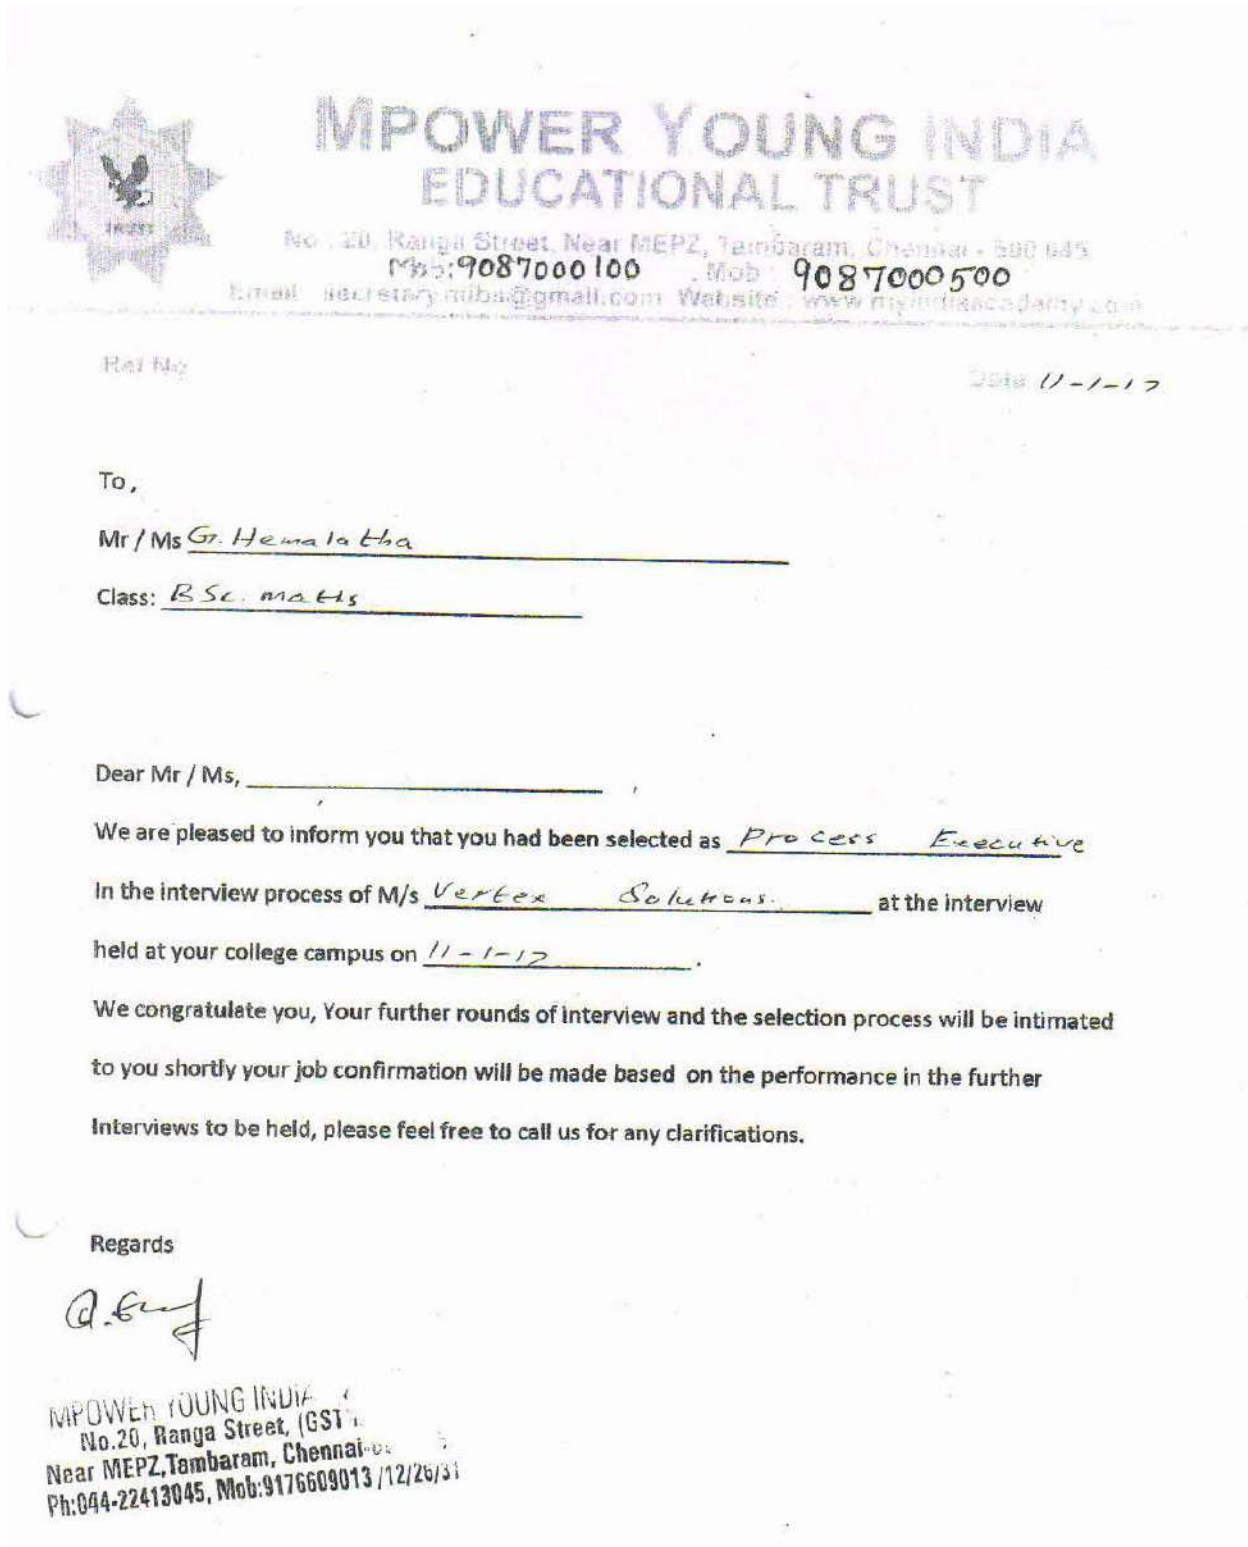 MPOWER YOUNG INDIA
EDUCATIONAL TRUST
TRUST
No : 20, Ranga Street, Near MEPZ, Tambaram, Chennai - 600 045
Mob:9087000100 Mob : 9087000500
Email secretary.miba@gmail.com Website : www.myindiaacademy.com
Ref No
Date 11-1-17
To,
Mr / Ms G. Hemalatha
Class: BSc. maths
Dear Mr / Ms, ,
We are pleased to inform you that you had been selected as Process Executive
In the interview process of M/s Vertex Solutions. at the interview
held at your college campus on 11-1-17 .
We congratulate you, Your further rounds of interview and the selection process will be intimated
to you shortly your job confirmation will be made based on the performance in the further
Interviews to be held, please feel free to call us for any clarifications.
Regards
MPOWER YOUNG INDIA
No.20, Ranga Street, (GST
Near MEPZ,Tambaram, Chennai-
Ph:044-22413045, Mob:9176609013 /12/26/31